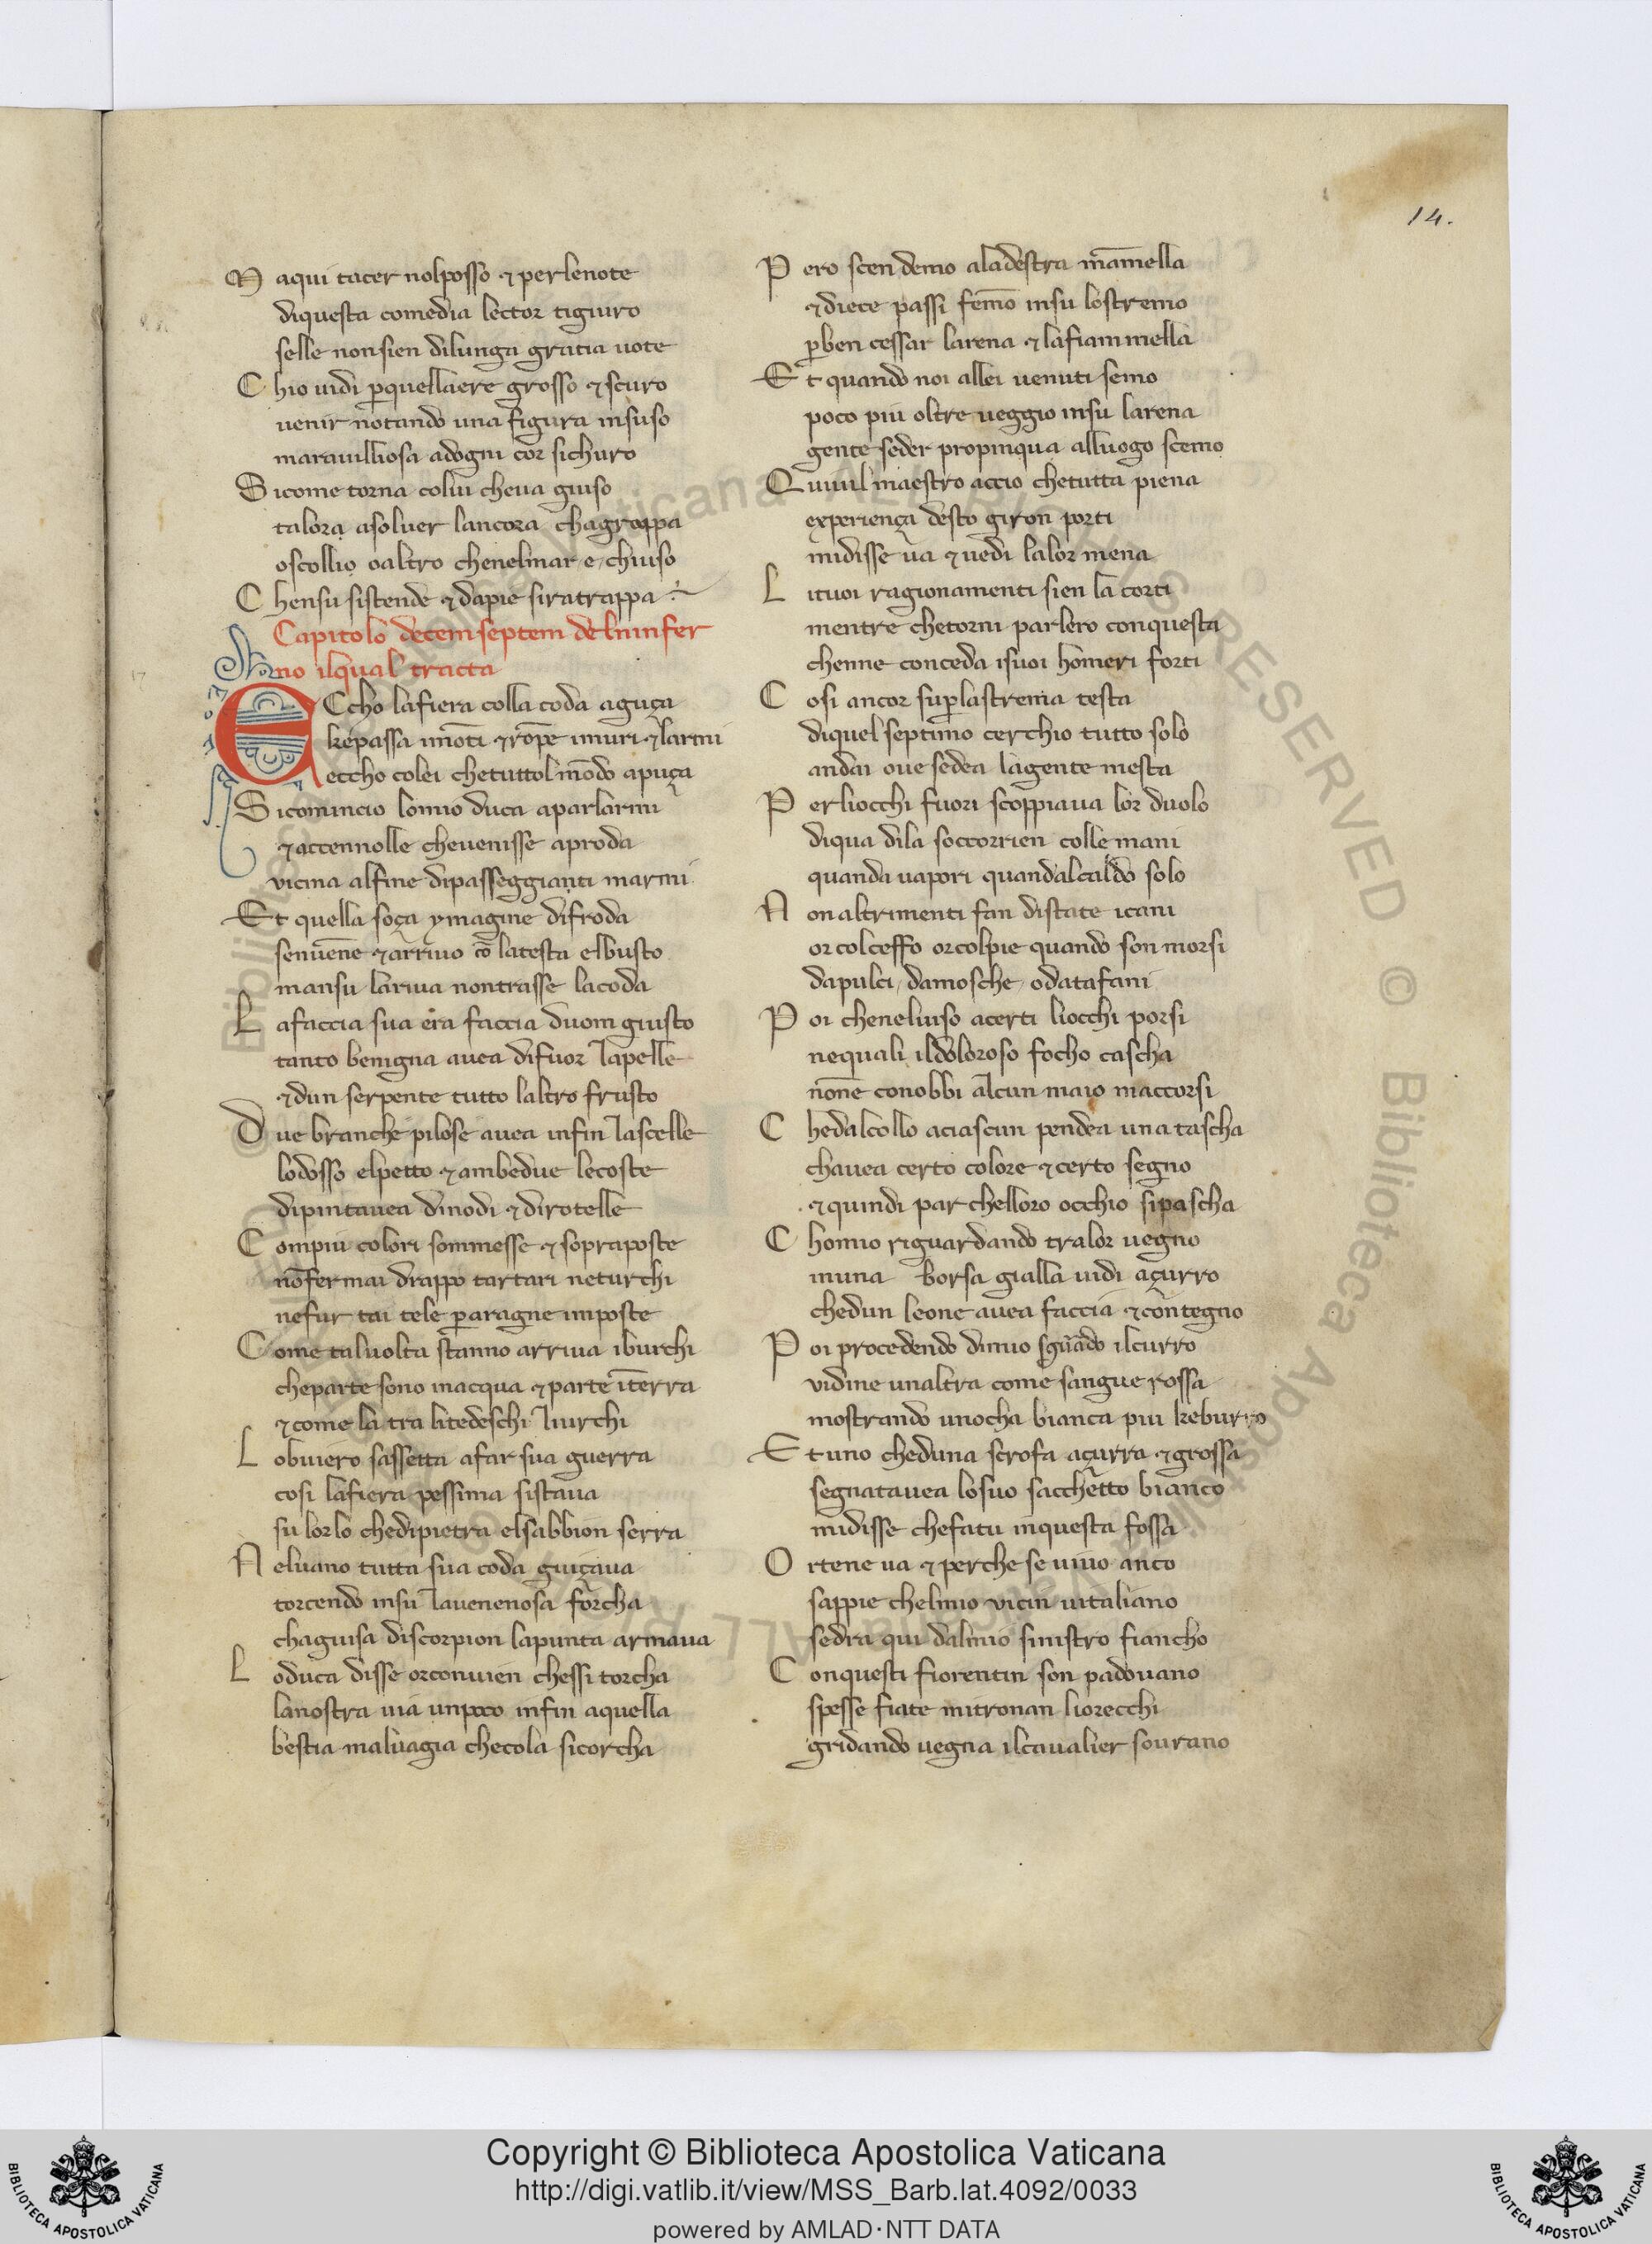 14.
M aqui tacer nolposso ⁊ perlenote
diquesta comedia lector tigiuro
selle nonsien dilunga gratia uote
C hio uidi ꝑquellaere grosso ⁊ scuro
uenir notando una figura insuso
marauilliosa adogni cor sichuro
S icome torna colui cheua giuso
talora asoluer lancora chagroppa
oscollio oaltro chenelmar e chiuso
C hensu sistende ⁊ dapie siratrappa
Capitolo decem septem delninfer
no ilqual tracta
ECcho lafiera colla coda aguça
kepassa imōti ⁊ rōpe imuri ⁊ larmi
eccho colei chetuttol mōdo apuça
S icomincio lomio duca aparlarmi
⁊ accennolle cheuenisse aproda
vicina alfine dipasseggianti marmi
E t quella soça ymagine difroda
senuēne ⁊ arriuo cō latesta elbusto
mansu lariua nontrasse lacoda
L afaccia sua era faccia duom giusto
tanto benigna auea difuor lapelle
⁊ dun serpente tutto laltro frusto
D ue branche pilose auea infin lascelle
lodosso elpetto ⁊ ambedue lecoste
dipintauea dinodi ⁊ dirotelle
C ompiu colori sommesse ⁊ sopraposte
nō fermai drappo tartari neturchi
nefur tai tele ꝑaragne imposte
C ome taluolta stanno arriua iburchi
cheparte sono inacqua ⁊ parte īterra
⁊ come la tra litedeschi lurchi
L obiuero sassetta afar sua guerra
cosi lafiera pessima sistaua
su lorlo chedipietra elsabbion serra
N eluano tutta sua coda guiçaua
torcendo insu lauenenosa forcha
chaguisa discorpion lapunta armaua
L oduca disse orconuien chessi torcha
lanostra uia unpoco infin aquella
bestia maluagia checola sicorcha
P ero scendemo aladestra māmella
⁊ diece passi femō insu lostremo
ꝑben cessar larena ⁊ lafiammella
E t quando noi allei uenuti semo
poco piu oltre ueggio insu larena
gente seder propinqua alluogo scemo
Q uiuil maestro accio chetutta piena
experiença desto giron porti
midisse ua ⁊ uedi lalor mena
L ituoi ragionamenti sien la corti
mentre chetorni parlero conquesta
chenne conceda isuoi homeri forti
C osi ancor suꝑlastrema testa
diquel septimo cerchio tutto solo
andai oue sedea lagente mesta
P erliocchi fuori scoppiaua lor duolo
diqua dila soccorrien colle mani
quanda uapori quandalcaldo solo
N on altrimenti fan distate icani
or colceffo orcolpie quando son morsi
dapulci damosche odatafani
P oi cheneluiso acerti liocchi porsi
nequali ildoloroso focho cascha
nōne conobbi alcun maio maccorsi
C hedalcollo aciascun pendea una tascha
chauea certo colore ⁊ certo segno
⁊ quindi par chelloro occhio sipascha
C homio riguardando tralor uegno
inuna borsa gialla uidi açurro
chedun leone auea faccia ⁊ contegno
P oi procedendo dimio sguādo ilcurro
vidine unaltra come sangue rossa
mostrando unocha bianca piu keburro
E t uno cheduna scrofa açurra ⁊ grossa
segnatauea losuo sacchetto bianco
midisse chefatu inquesta fossa
O rtene ua ⁊ perche se uiuo anco
sappie chelmio vicin uitaliano
sedra qui dalmio sinistro fiancho
C onquesti fiorentin son padouano
spesse fiate mitronan liorecchi
gridando uegna ilcaualier sourano
Copyright © Biblioteca Apostolica Vaticana
http://digi.vatlib.it/view/MSS_Barb.lat.4092/0033
powered by AMLAD·NTT DATA
BIBLIOTECA APOSTOLICA VATICANA
BIBLIOTECA APOSTOLICA VATICANA